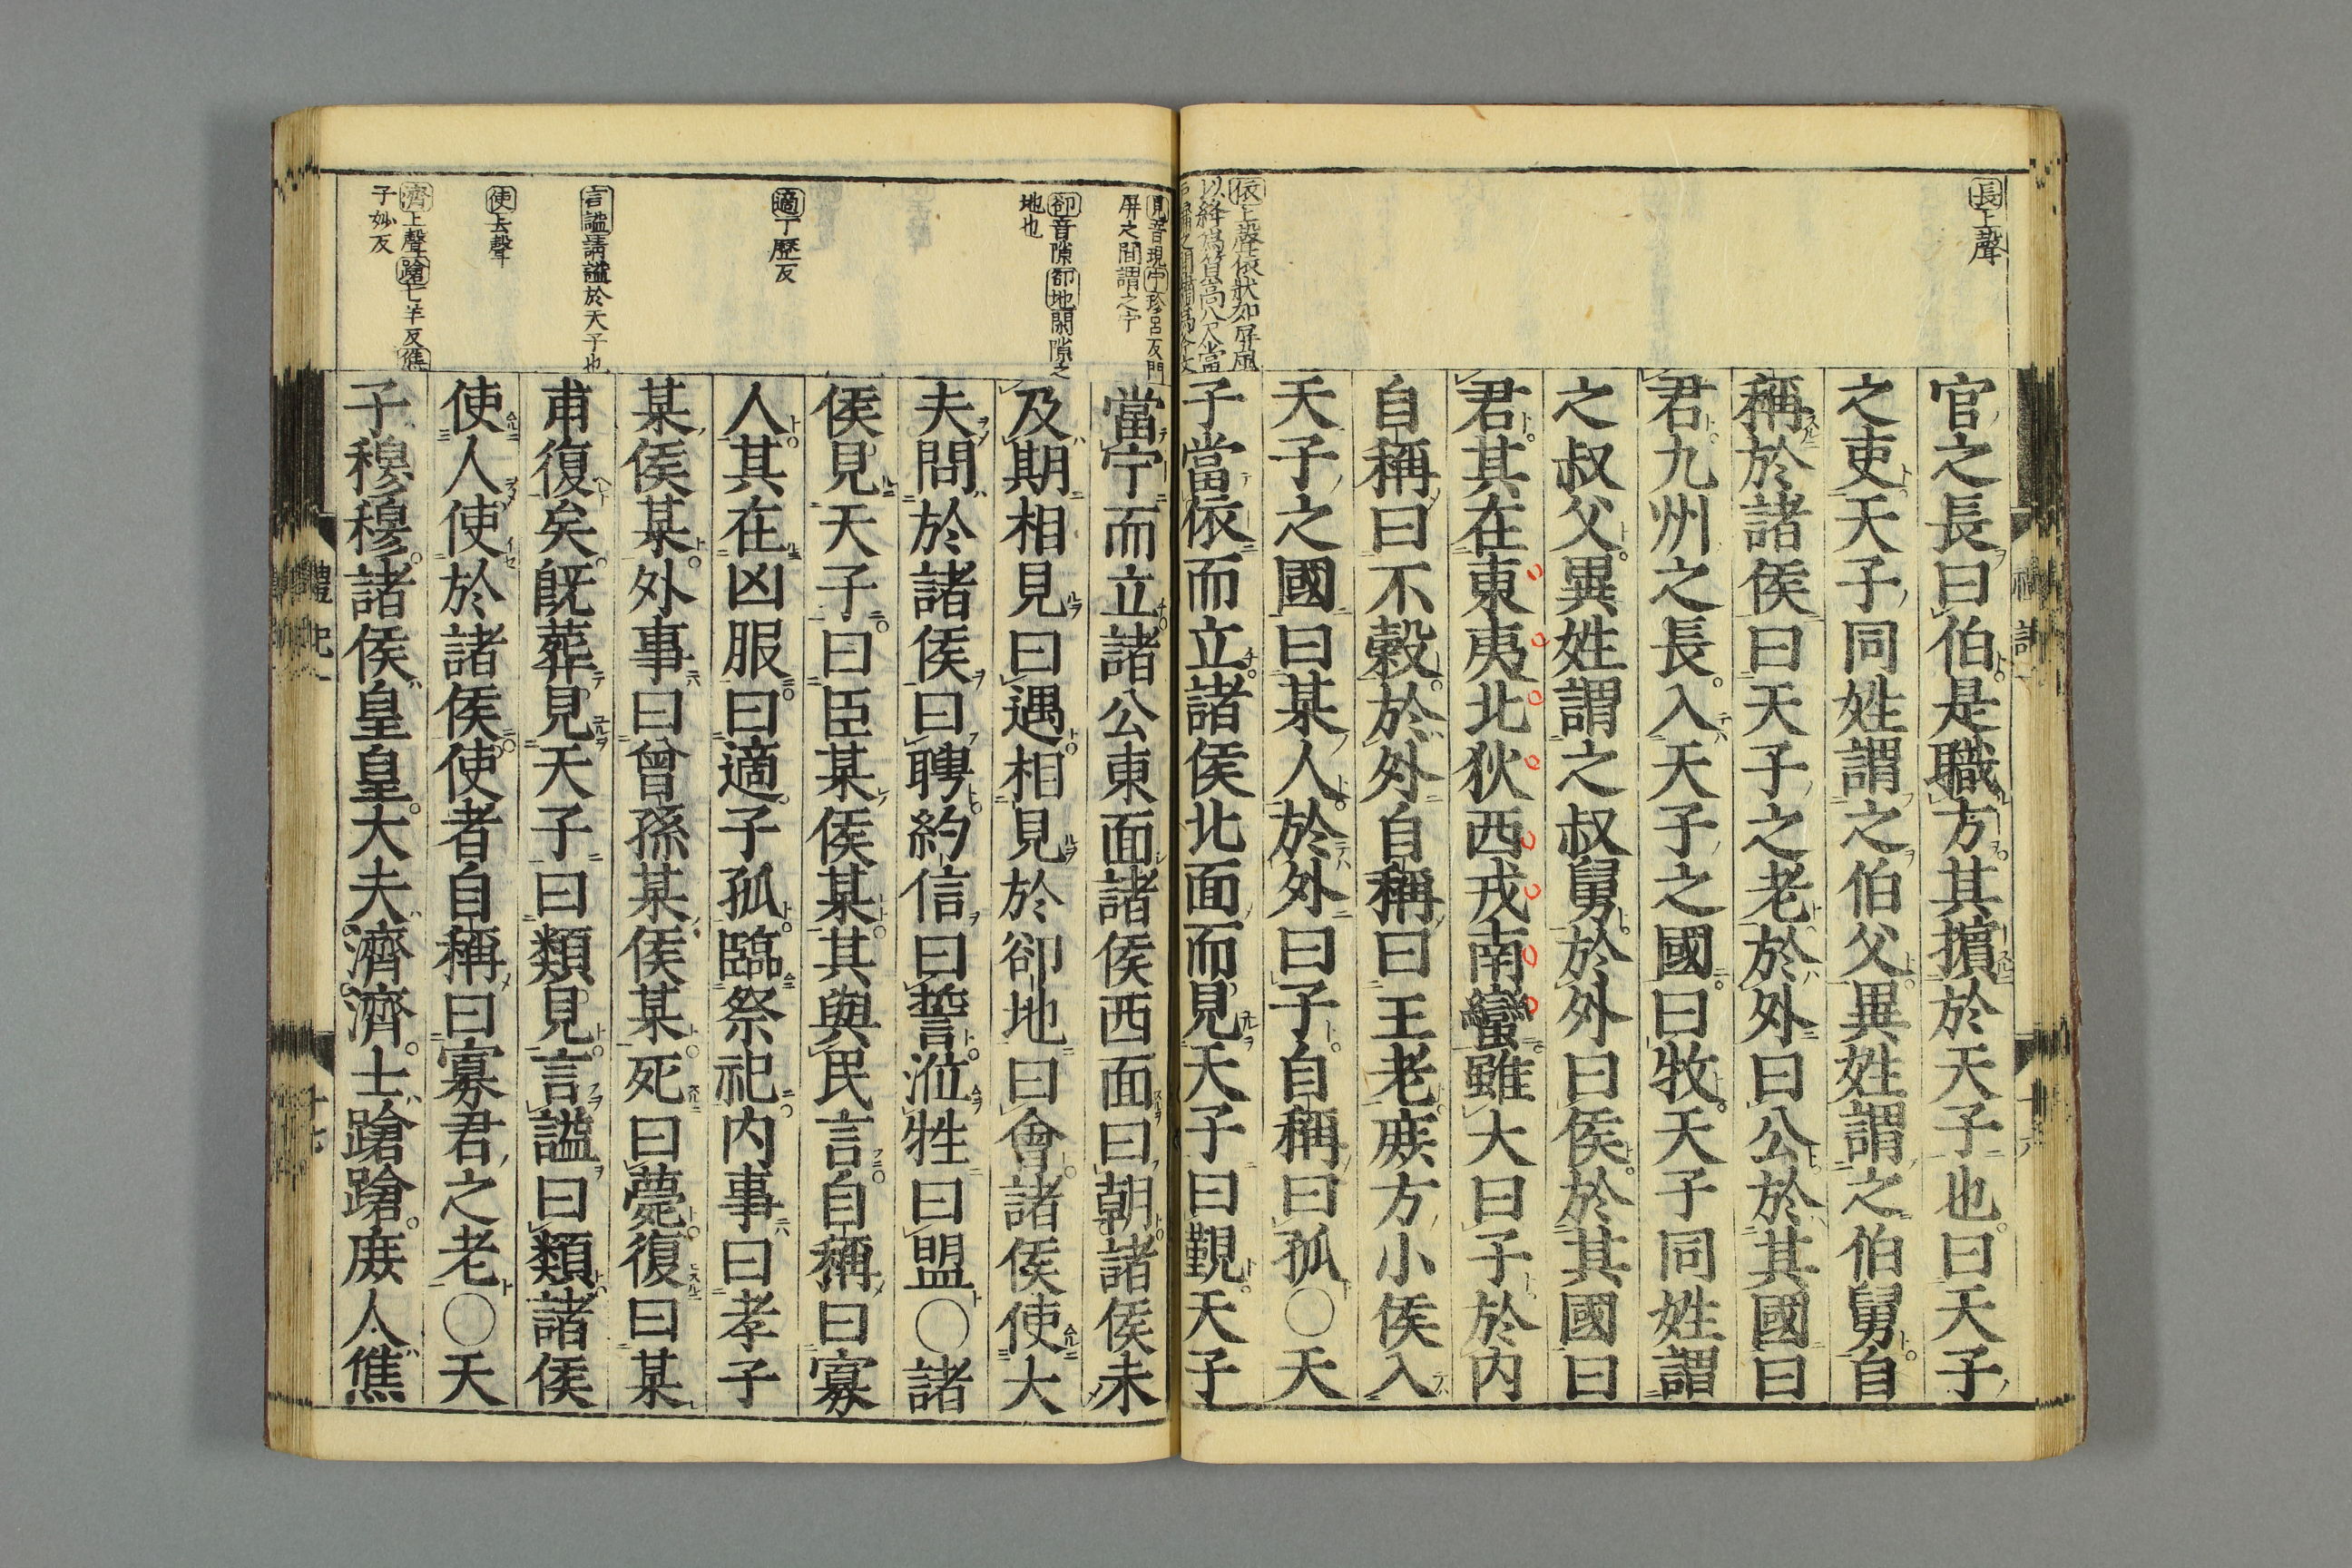 長上聲
官之長曰伯是職方其擯於天子也曰天子
之吏天子同姓謂之伯父異姓謂之伯舅自
稱於諸侯曰天子之老於外曰公於其國曰
君九州之長入天子之國曰牧天子同姓謂
之叔父異姓謂之叔舅於外曰侯於其國曰
君其在東夷北狄西戎南蠻雖大曰子於內
自稱曰不穀於外自稱曰王老庻方小侯入
天子之國曰某人於外曰子自稱曰孤〇天
子當依而立諸侯北面而見天子曰覲天子
依上聲依狀如屏風
以絳爲質高八尺
見音現宁珍呂反門
屏之間謂之宁
郤音隙郤地閑隙之
地也
適丁歷反
言謚請謚於天子也
使去聲
濟上聲蹌七羊反僬
子妙反
當宁而立諸公東面諸侯西面曰朝諸侯未
及期相見曰遇相見於郤地曰會諸侯使大
夫問於諸侯曰聘約信曰誓涖牲曰盟〇諸
侯見天子曰臣某侯某其與民言自稱曰寡
人其在凶服曰適子孤臨祭祀內事曰孝子
某侯某外事曰曾孫某侯某死曰薨復曰某
甫復矣既葬見天子曰類見言謚曰類諸侯
使人使於諸侯使者自稱曰寡君之老〇天
子穆穆諸侯皇皇大夫濟濟士蹌蹌庻人僬
禮記一
十七